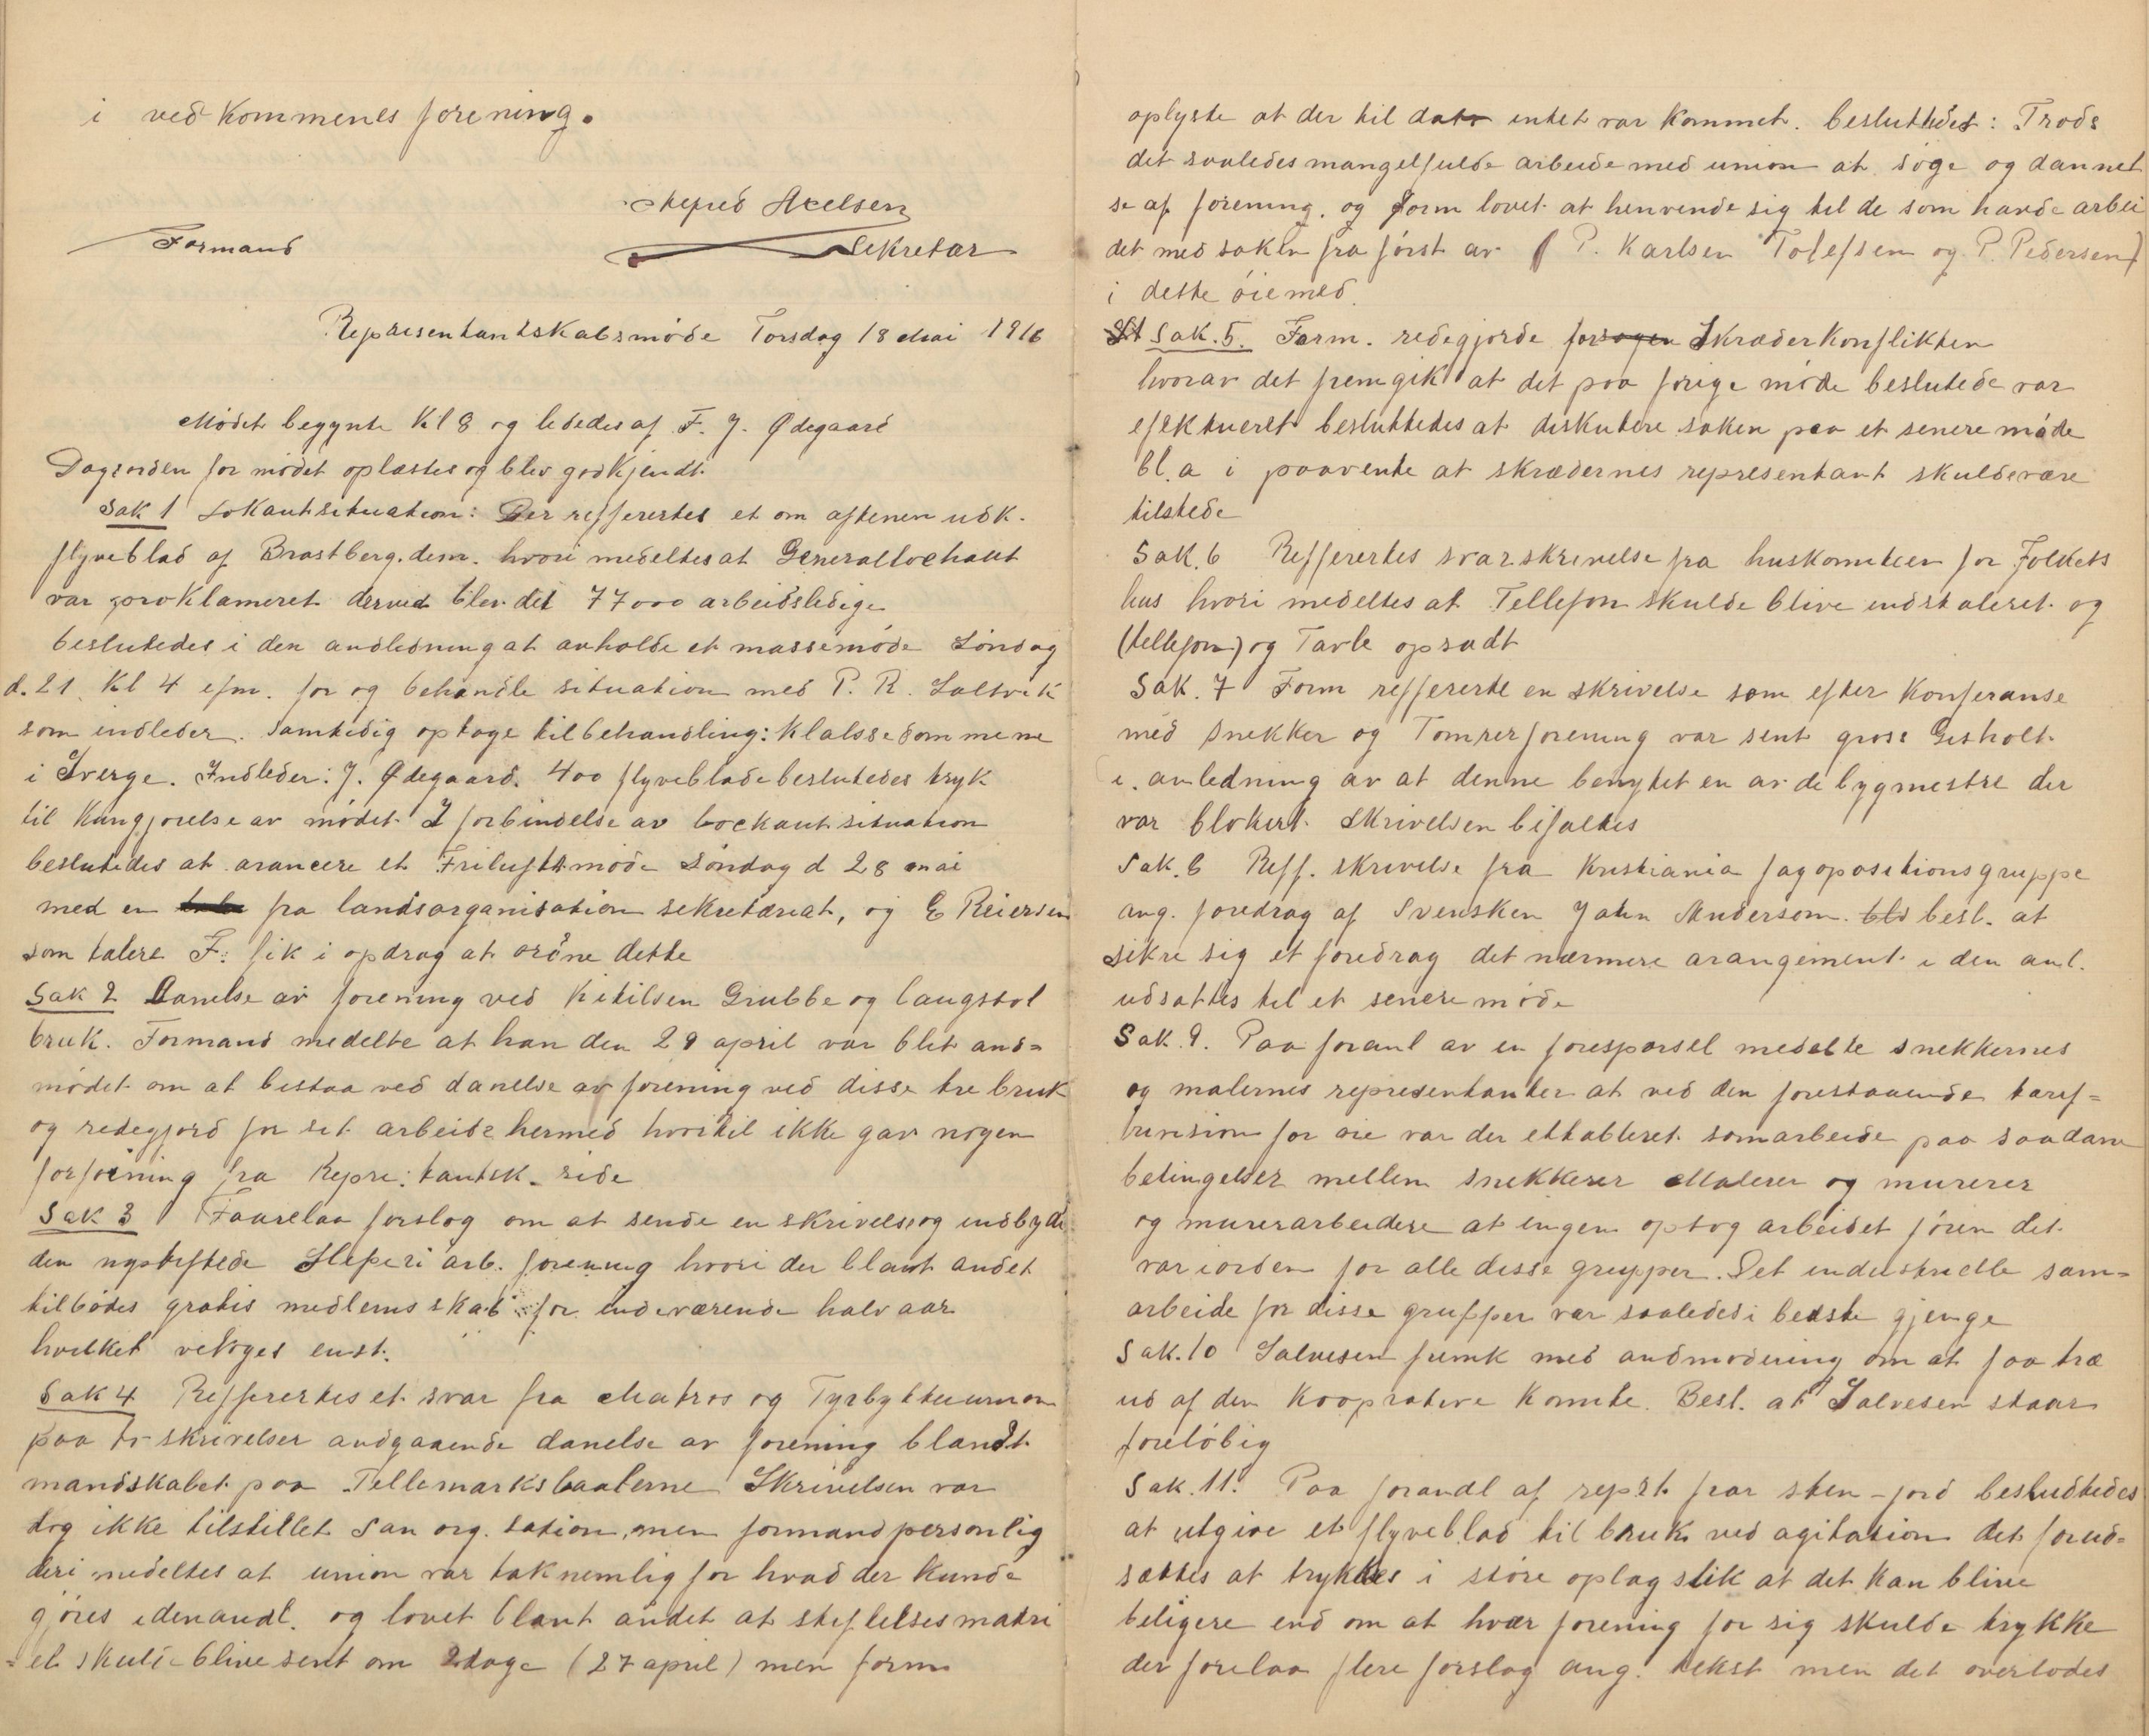 i vedkommenes forening.
Axelsen
Formand
Sekretær
Repræsentantskabsmøde Torsdag 18 Mai 1916
Mødet begynte Kl 8 og lededes af F. J. Ødegaard
Dagsorden for mødet oplæstes og blev godkjendt.
Sak 1 Lokautsituation: Der refferertes et om aftenen udk.
flyveblad af Bratsberg. dem. hvori medeltes at Generallockaut
var proklameret derved blev det 77000 arbeidsledige
beslutedes i den andledning at avholde et massemøde Søndag
d. 21 Kl 4 efm. for og behandle situation med P. R. Saltvik
som indleder. Samtidig optoge til behandling: Klalssedommene
i Sverge. Indleder: J. Ødegaard. 400 flyveblade beslutedes tryk
til kungjørelse av mødet. I forbindelse av lockautsituation
beslutedes at arancere et Friluftsmøde Søndag d 28 mai
med en fra landsorganisation sekretæriat, og E Reiersen
som talere F: fik i opdrag at ordne dette
Sak 2 Danelse av forening ved Kitilsen Grubbe og Langstol
bruk. Formand medelte at han den 29 april var blit and=
mødet om at bistaa ved danelse av forening ved disse tre bruk
og redegjord for sit arbeide hermed hvortil ikke gav nogen
forføining fra Repre: tantsk. side
Sak 3 Faarelaa forslag om at sende en skrivelse og indbyde
den nystiftede Sliperi arb. forening hvori der blant andet
tilbødes gratis medlemsskab for indeværende halvaar
hvilket vetoges enst.
Sak 4 Refferertes et svar fra Matros og Fyrbøterunion
paa to skrivelser andgaaende danelse av forening blandt
mandskabet paa Tellemarksbaaterne Skrivelsen var
dog ikke tilstillet Sam org. sation, men formand personlig
deri medeltes at union var taknemlig for hvad der kunde
gjøres i den andl. og lovet blant andet at stiftelsesmatri
=el skulde blive sent om 2 dage (27 april) men form
oplyste at der til dato intet var kommet. besluttedes: Trods
det saaledes mangelfulde arbeide med union at søge og dannel
se af forening. og Form lovet at henvende sig til de som havde arbei
det med saken fra først av (P. Karlsen Tolefsen og P. Pedersen)
i dette øiemed.
Sak. 5. Form. redegjorde Skræderkonflikten
hvorav det fremgik at det paa forige møde beslutede var
efektueret besluttedes at diskutere saken paa et senere møde
bl. a i paavente at skrædernes representant skulde være
tilstede
Sak. 6 Refferertes svarskrivelse fra huskomiteen for Folkets
hus hvori medeltes at Tellefon skulde blive indstaleret og
(tellefon) og Tavle opsadt
Sak. 7 Form reffererte en skrivelse som efter Konferanse
med Snekker og Tømrerforening var sent gross Gisholt
i anledning av at denne benyttet en av de bygmestre der
var blokert. Skrivelsen bifaltes
Sak. 8 Reff. skrivelse fra Kristiania fagopositionsgruppe
ang. foredrag af Svensken John Andersom. besl. at
sikre sig et foredrag det nærmere arangement i den anl.
udsattes til et senere møde
Sak. 9. Paa foranl av en forespørsel medelte snekkernes
og malernes representanter at ved den forestaaende tarif=
revision for oie var der ettableret samarbeide paa saadane
betingelser mellem snekkerer Malerer og murerer
og murerarbeidere at ingen optog arbeidet føren det
var iorden for alle disse grupper. Det industrielle sam=
arbeide for disse grupper var saaledes i bedste gjenge
Sak. 10 Salvesen fremk med andmodening om at faa træ
ud af den Kooprative Komite. Besl. at Salvesen staar
foreløbig
Sak. 11. Paa forandl af reprt. fra sten-jord besludtedes
at utgive et flyveblad til bruk ved agitation det forud=
sættes at trykkes i støre oplag slik at det kan blive
beligere end om at hvær forening for sig skulde trykke
der forelaa flere forslag ang. tekst men det overlodes